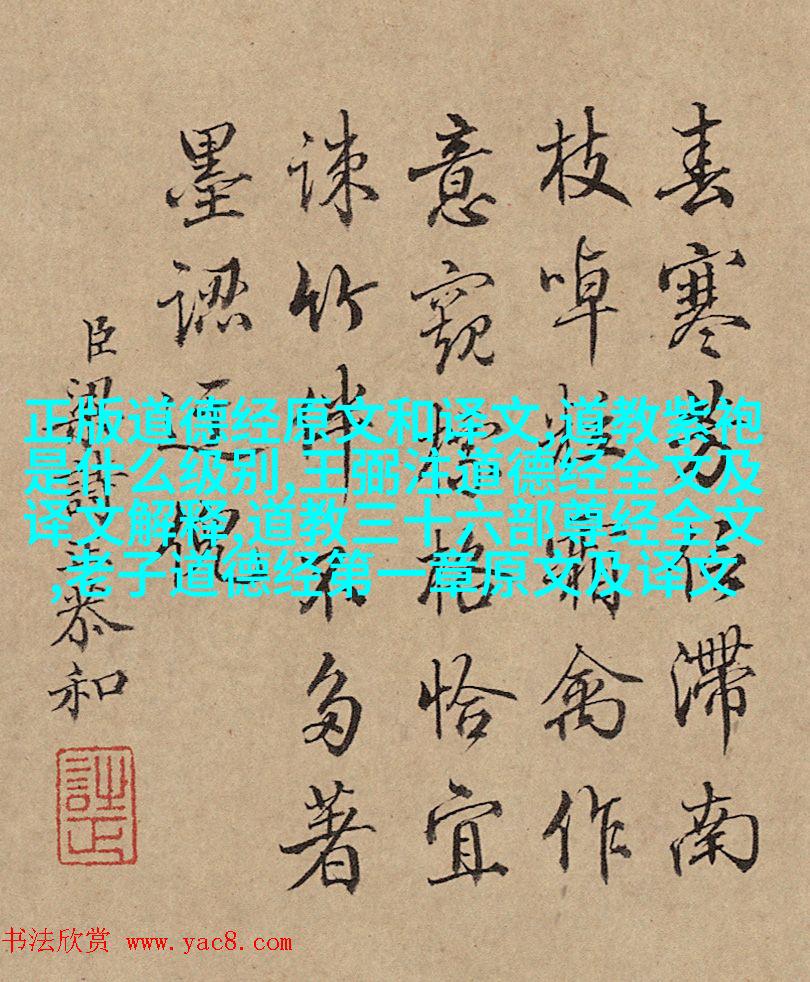 春寒信滯南
枝啅禽作
意窺格恰宜
竹伴不多著
墨認逼
臣梁詩正恭和
正版道德经原文和译文,道教紫袍
是什么级别,王弼注道德经全文及
译文解释,道教三十六部尊经全文
,老子道德经第一章原文及译文
书法欣赏 www.yac8.com